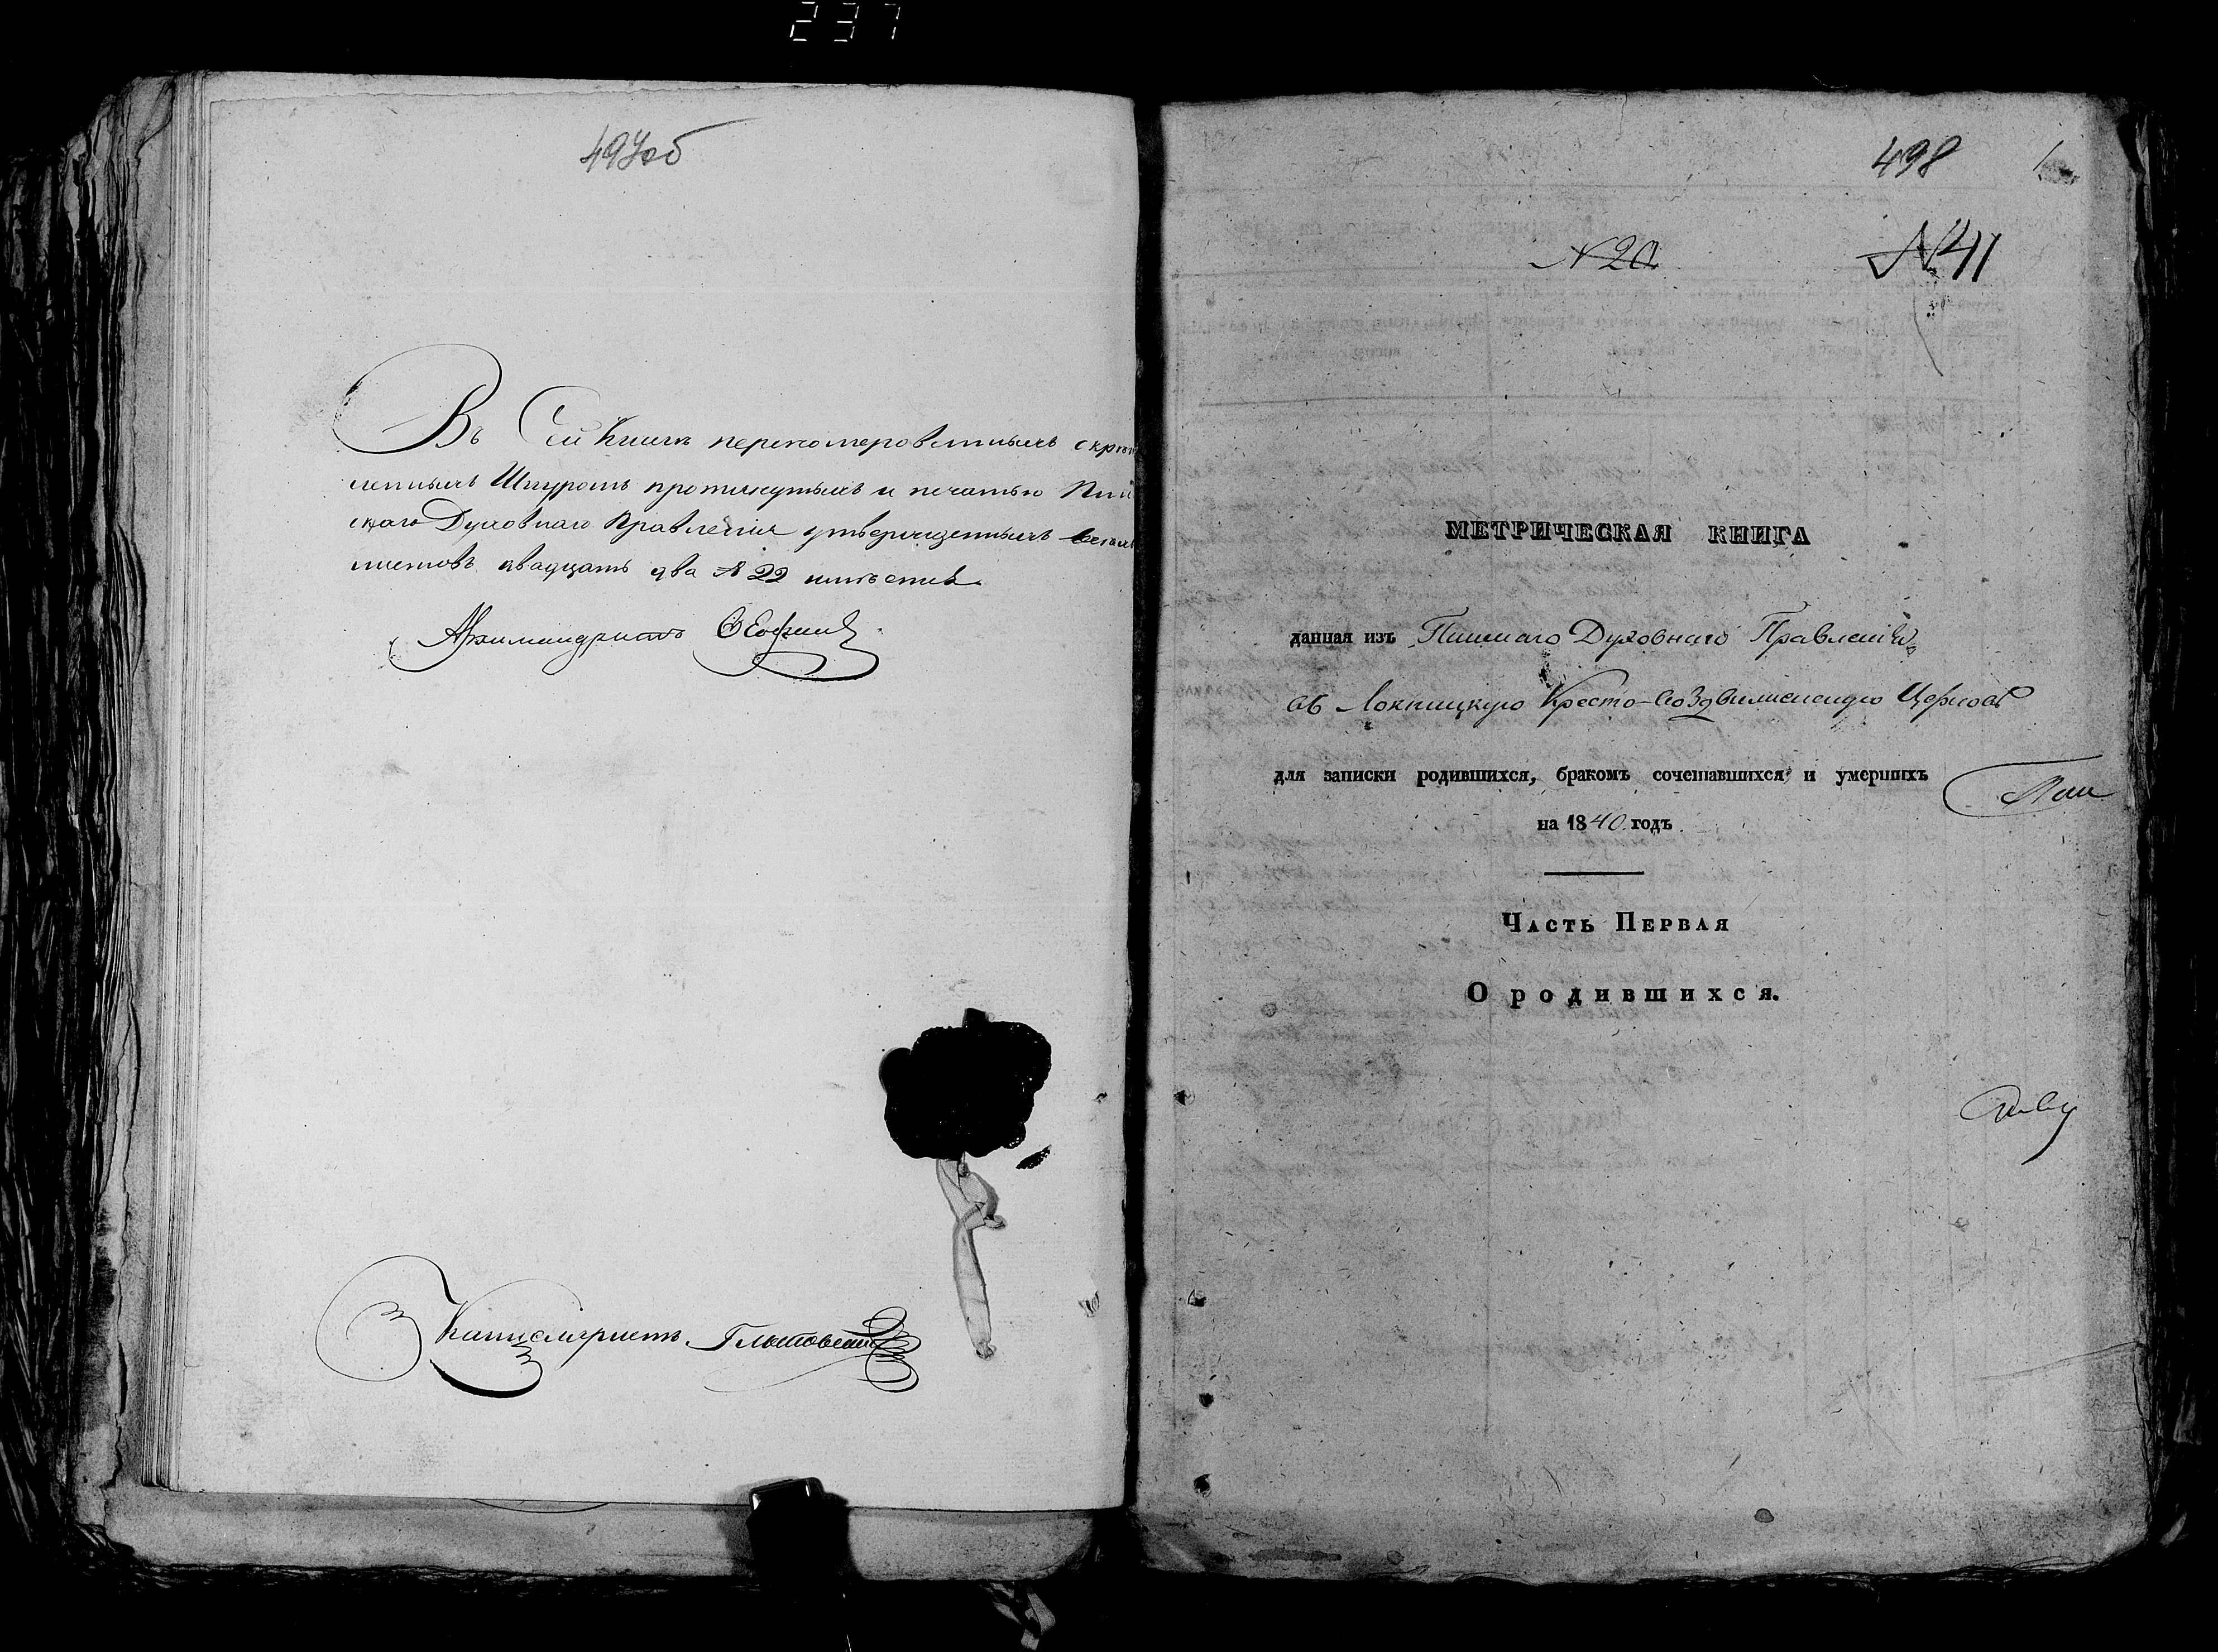 237
497об
Въ Сей Книгѣ переномерованныхъ скрѣп
ленныхъ Шнуромъ протянутыхъ и печатью Пин
скаго Духовнаго Правленія утвержденныхъ всѣхъ
листовъ двадцать два № 22 имѣется
Архимандритъ
Канцеляристъ
498
1
№ 20
№ 41
МЕТРИЧЕСКАЯ КНИГА
данная изъ Пинскаго Духовнаго Правленія
въ Локницкую Кресто-Воздвиженскую Церковь
для записки родившихся, бракомъ сочетавшихся и умершихъ
на 1840 годъ
Часть Первая
О родившихся.